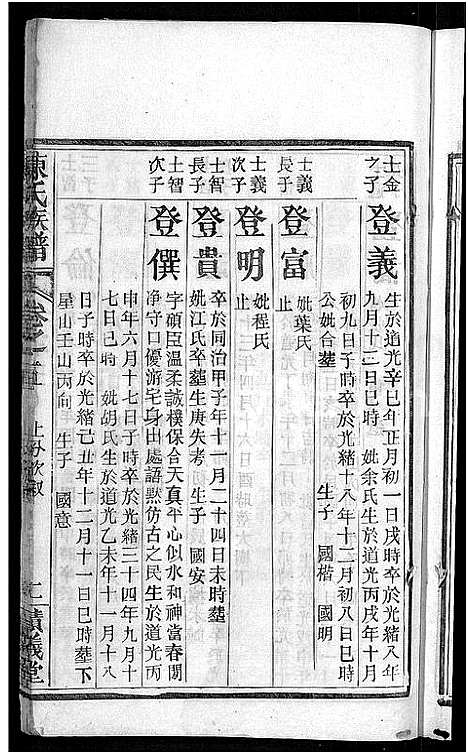 士金
之子
登義
生於道光辛巳年正月初一日戌時卒於光緒八年
九月十二日巳時 妣余氏生於道光丙戌年十月
初九日子時卒於光緒十八年十二月初八日巳時
公妣合墓 生子 國楷 國明
士義
長子
登富
妣葉氏
止
士義
次子
登明
妣程氏
止
士智
長子
登貴
卒於同治甲子年十一月二十四日未時墓
妣江氏卒墓生庚失考 生子 國安
士智
次子
登僎
字碩臣溫柔誠樸保合天真平心似水和神當春閉
淨守口優游宅身出處語默仿古之民生於道光丙
申年六月十七日子時卒於光緒三十四年九月十
七日巳時 妣胡氏生於道光乙未年十一月十八
日子時卒於光緒己丑年十二月十一日巳時墓下
星山壬山丙向 生子 國意
陳氏族譜
卷之五
績義堂